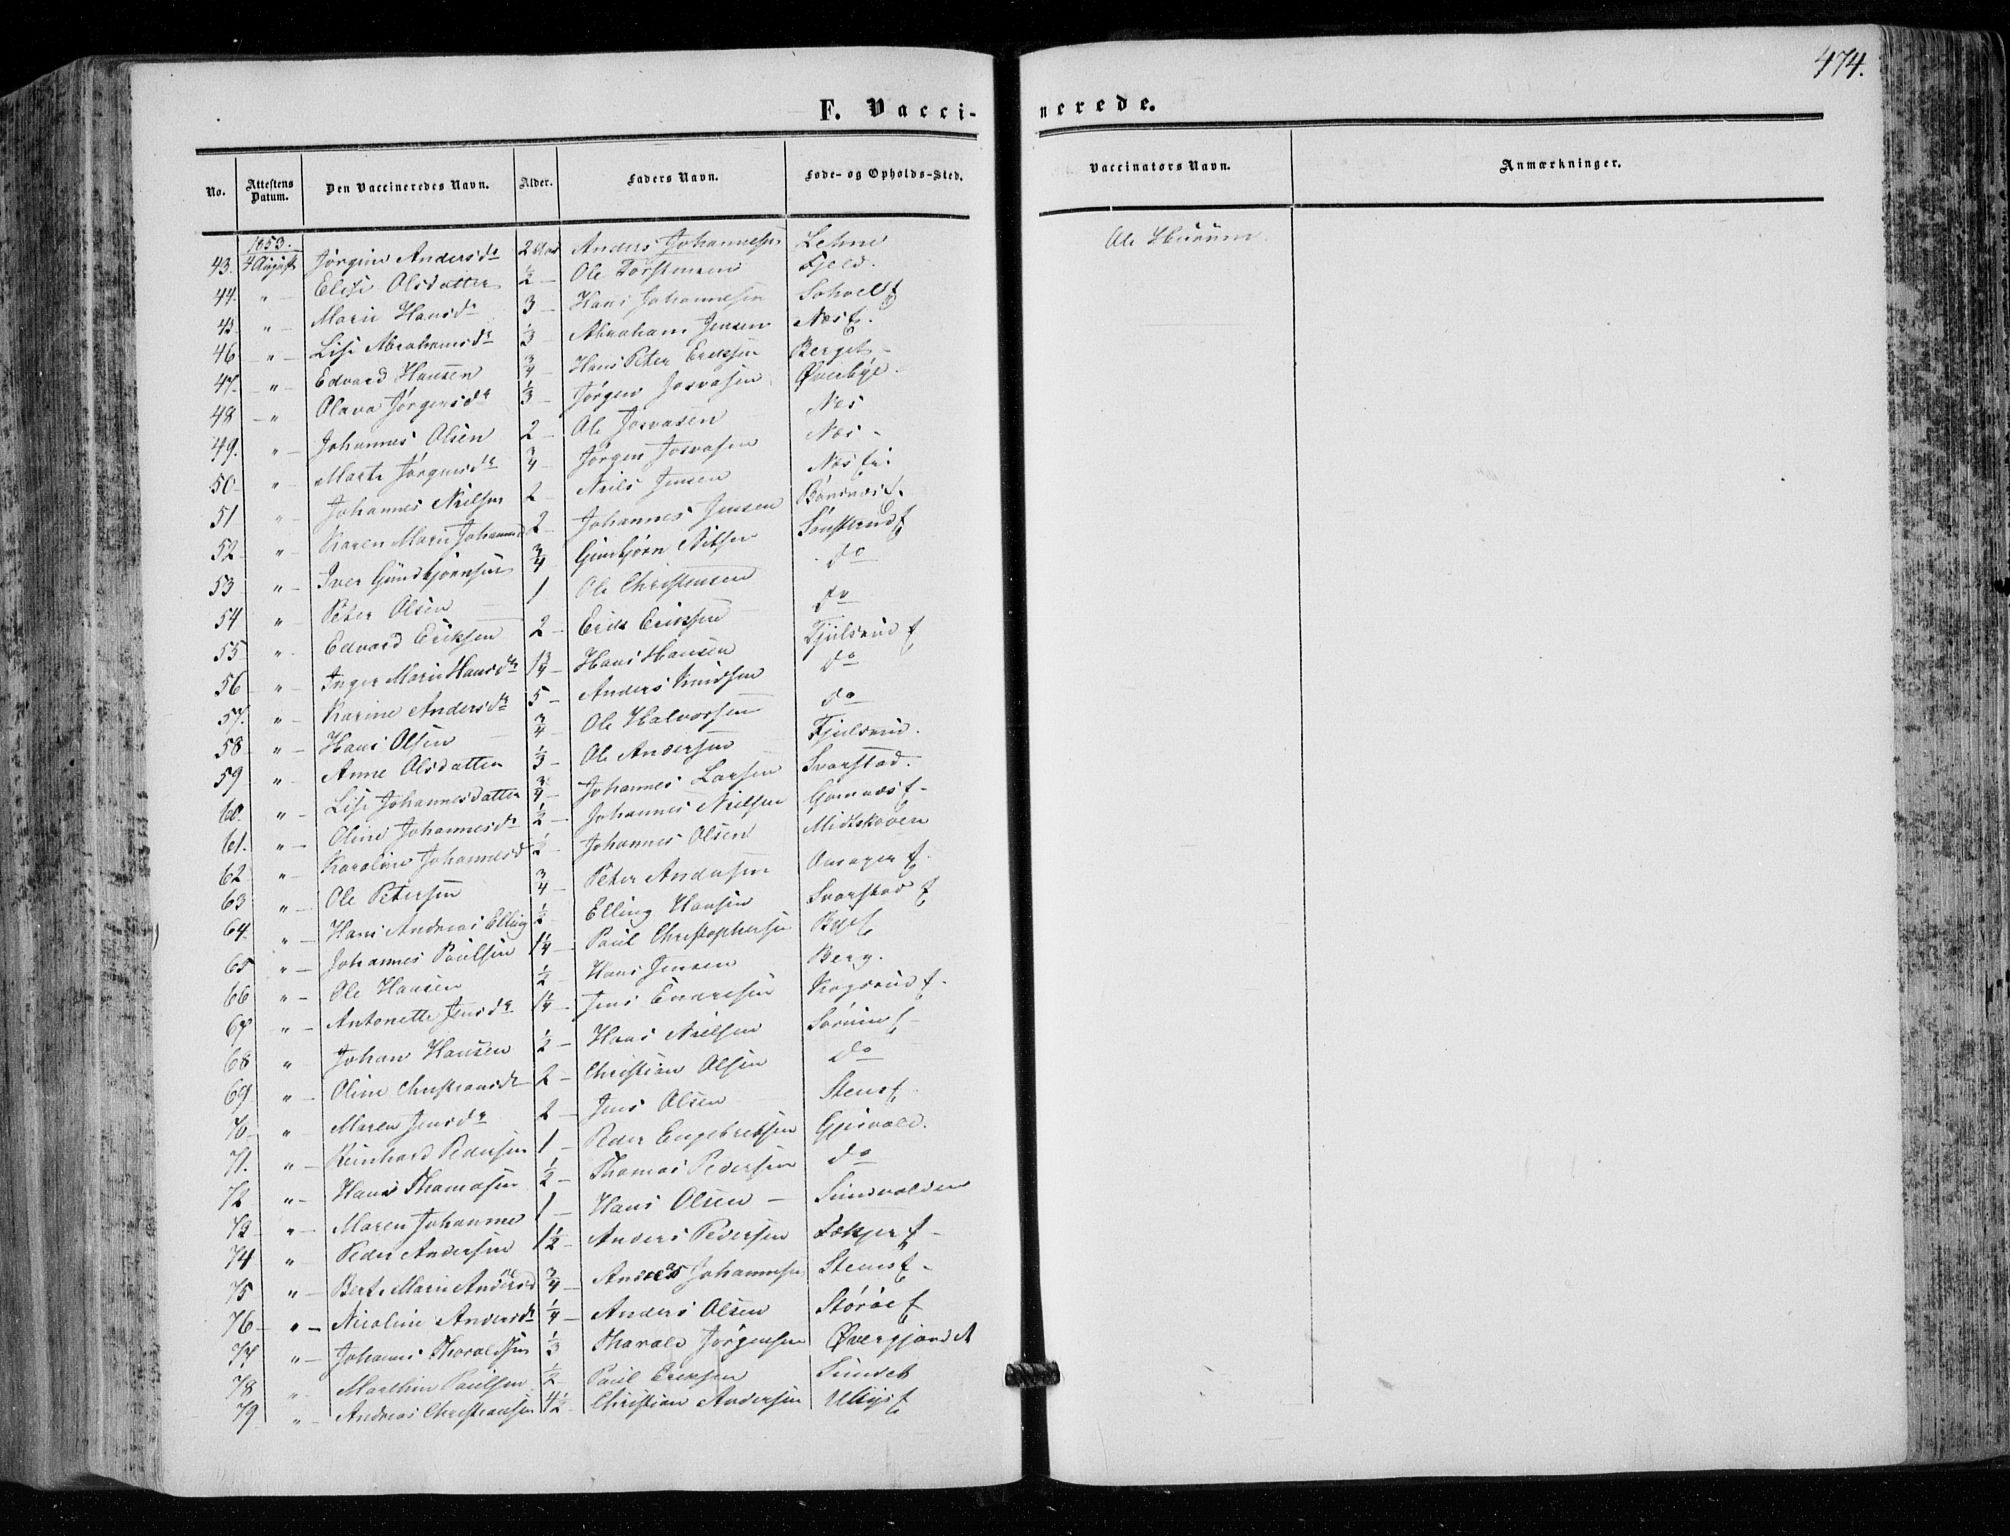 474.
F. Vaccinerede.
No. Attestens Datum. Den Vaccineredes Navn. Alder. Faders Navn. Føde- og Opholds-Sted. Vaccinators Navn. Anmærkninger.
1853.
43. 4 August Jørgine Andersdr 2 Aar Anders Johannesen Lehne Ole
44. " Elise Olsdatter ½ Ole Torstensen Fjeld.
45 " Marie Hansdr 3 Hans Johannesen
46 " Lise Abrahamsdr ⅓ Abraham Jensen Næs E.
47. " Edvard Hansen ¾ Hans Peter Eriksen Berget
48 " Olava Jørgensdr ⅓ Jørgen Josvasen Øverbye.
49. " Johannes Olsen 2 Ole Josvasen Næs
50 " Marte Jørgensdr ¾ Jørgen Josvasen Næs
51 " Johannes Nielsen 2 Niels Jensen Næs Ei.
52 " Karen Marie Johannesd 2 Johannes Jensen Bønsnæs E.
53 " Iver Gundbjørnsen ¾ Gunbjørn Nilsen Sønsterud E
54 " Peter Olsen 1 Ole Christensen do
55 " Edvard Eriksen 2 Erik Eriksen do
56 " Inger Marie Hansdr 1¾ Hans Hansen Fjulsrud E
57. " Karine Andersdr 5 Anders Knudsen do
58 " Hans Olsen ¾ Ole Halvorsen do
59 " Anne Olsdatter ⅓ Ole Andersen Fjulsrud.
60. " Lise Johannesdatter ¾ Johannes Larsen Svarstad.
61. " Oline Johannesdr ½ Johannes Nielsen Gomnæs E
62 " Karoline Johannesd ½ Johannes Olsen Midtskoven
63 " Ole Petersen ¾ Peter Andersen Amager E.
64. " Hans Andreas Elling ½ Elling Hansen Svarstad E
65 " Johannes Paulsen 1¼ Paul Christophersen Bye E
66 " Ole Hansen ½ Hans Jensen Berg.
67 " Antonette Jensdr 1¼ Jens Evensen Rogsrud E.
68 " Johan Hansen ½ Hans Nielsen Sørum E
69 " Oline Christiansdr 2 Christian Olsen do
70 " Maren Jensdr 2 Jens Olsen Stens E.
71. " Reinhard Pedersen 1 Peder Engebretsen Gjesvald.
72 " Hans Thomasen ½ Thomas Pedersen do
73 " Maren Johanne 1 Hans Olsen Sundvolden
74 " Peder Andersen 1½ Anders Pedersen Fækjer E
75 " Berte Marie Andersd ¾ Anders Johannesen Stens E
76 " Nicoline Andersdr ¼ Anders Olsen Storøe E
77 " Johannes Thoraldsen ⅓ Tharald Jørgensen Øvergjordet
78 " Marthin Paulsen ½ Paul Eriksen Sundet
79 " Andreas Christiansen 4½ Christian Andersen Ulleys E